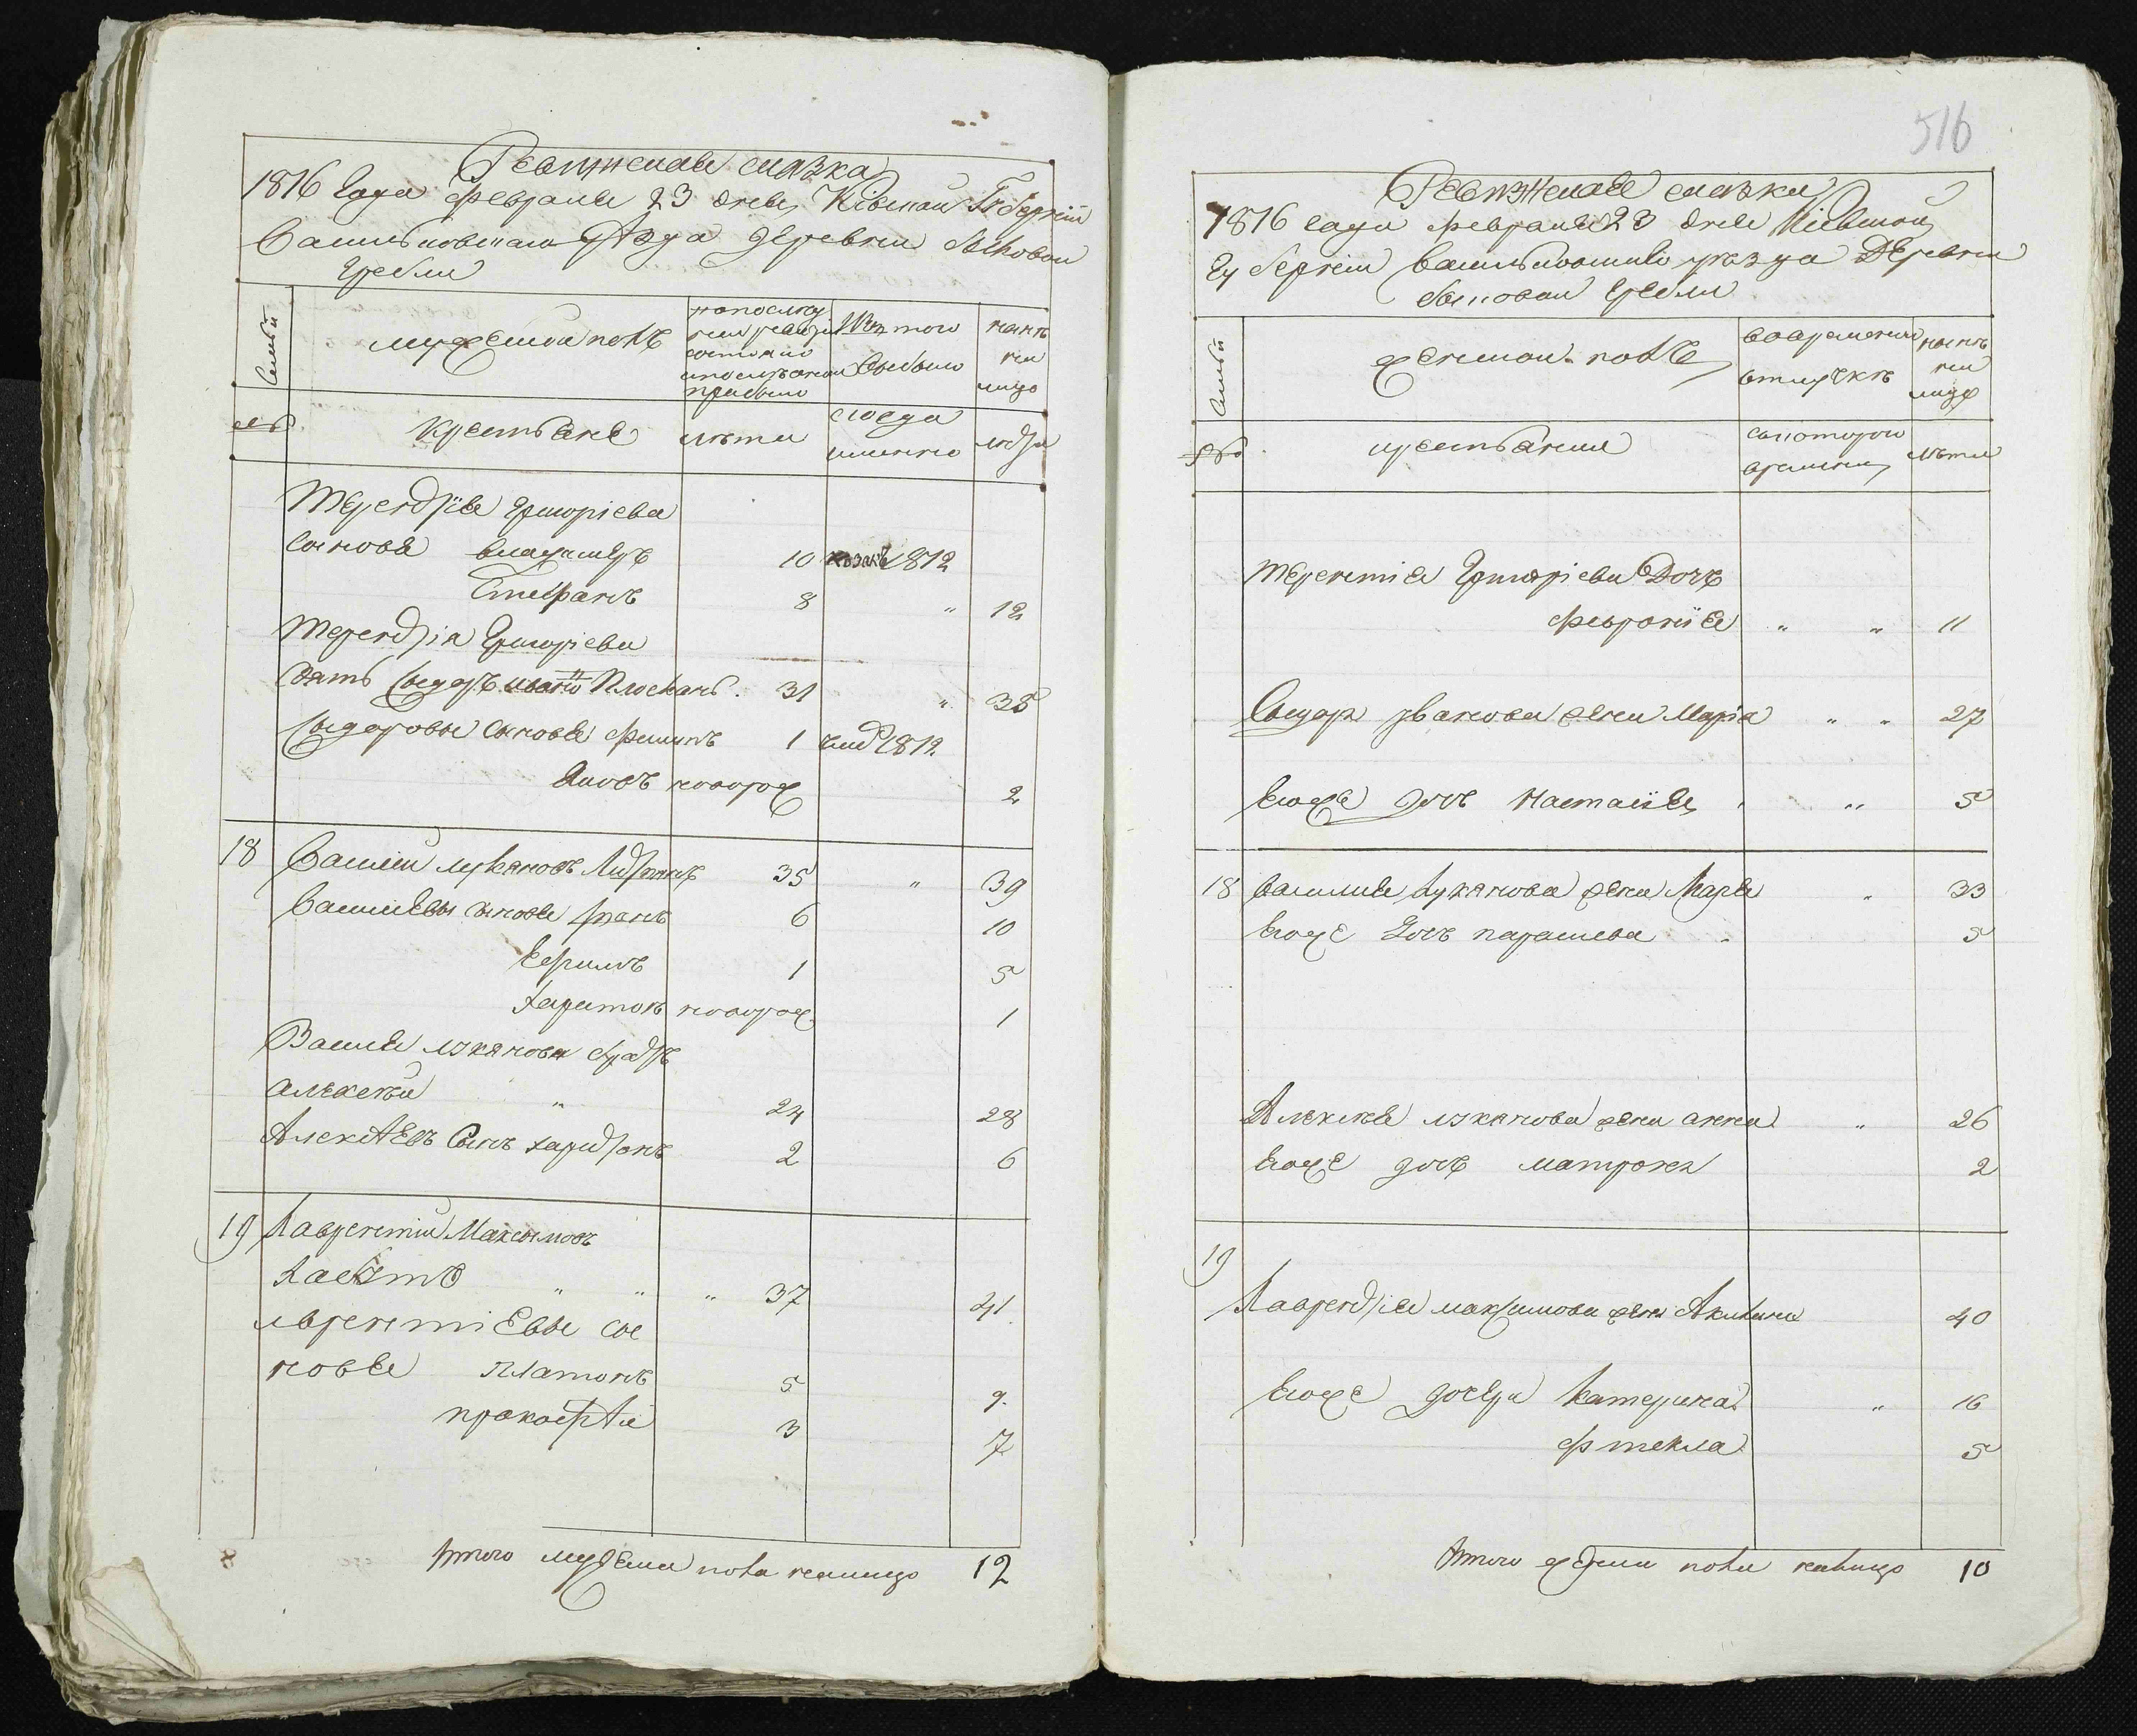 Ревижская сказка
1816 Года февраля 23 дня Кіевской Губерніи
Васильковскаго уѣзда деревни Быковой
Гребли
Семьи
мужеской полъ
по последней ревизіи состояло и после оной прибыло
Изъ того выбыло
нынѣ на лицо
№
крестьяне
лѣта
когда именно
лѣта
Терентія Григоріева
сыновья Владимеръ 10 казакъ 1812
Стефанъ 8 " 12
Терентія Григоріева
зять Сидоръ Ивановъ 31 " 35
Сидоровы сыновья Филипъ 1 умер 1812
Яковъ новорож 2
18 Василій Лукяновъ 35 " 39
Василіевы сыновья Иванъ 6 10
Ефимъ 1 5
Харитонъ новорож 1
Василя Лукянова братъ
Алексѣй " 24 28
Алексѣевъ Сынъ Харитонъ 2 6
19 Лаврентій Максымовъ
" " " 37 41
Лврентіевы сы
новья Платонъ 5 9.
Прокофѣй 3 7
8
Итого мужеска пола налицо 12
516
Ревижская сказка
1816 года февраля 23 дня Кіевской
Губерніи Васильковского уезда Деревни
Быковой Гребли
Семьи
женской полъ
во временной отлучкѣ
нынѣ на лицо
№
крестьяния
с котораго времени
лѣта
Терентія Григоріева Дочъ
Февронія " " 11
Сыдора Иванова жена Марія " " 27
Егожъ дочъ Настасія " " 5
18 Василия Лукянова жена Марья " 33
Егоже Дочъ Парасиева " 5
Алексѣя Лукянова жена Анна " 26
Егоже дочъ Матрона 2
19
Лаврентія Максимова жена Акилина 40
Егоже дочери Катерина " 16
Фтекла 5
Итого женска пола налицо 10